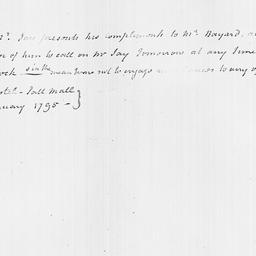 Mr. Jay presents his compliments to Mr. Bayard, a
of him to call on Mr Jay Tomorrow at any time
ock in the mean time not to engage to any o
otel - Pall Mall
nuary 1795 -